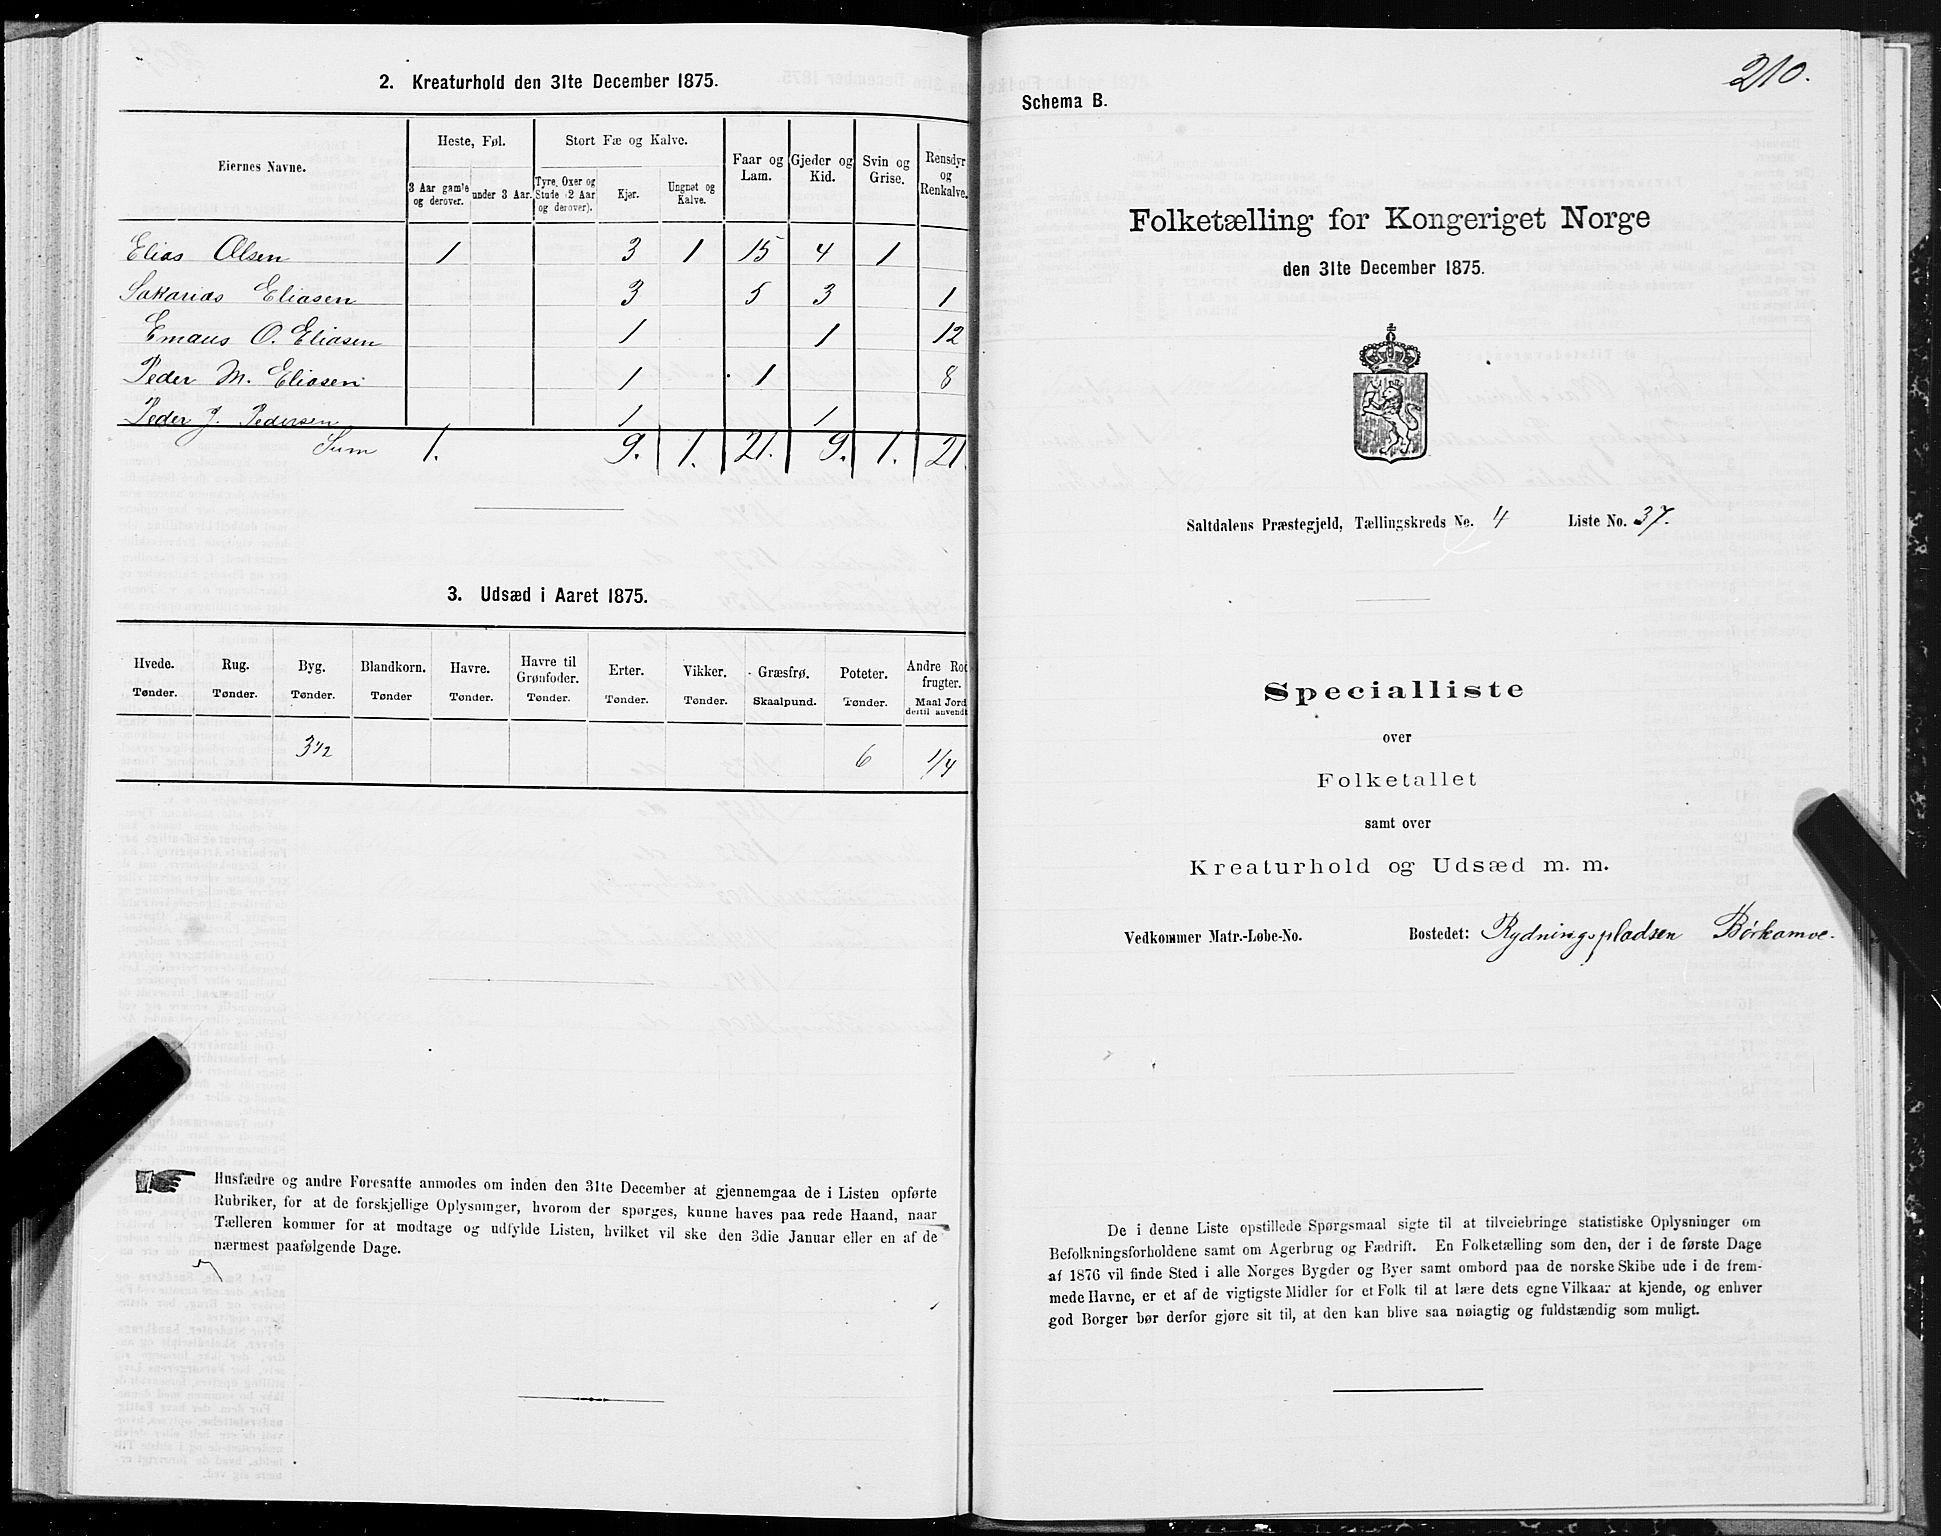 2. Kreaturhold den 31te December 1875.
Eiernes Navne.
Heste, Føl.
Stort Fæ og Kalve.
Faar og Lam.
Gjeder og Kid.
Svin og Grise.
Rensdyr og Renkalve.
3 Aar gamle og derover.
under 3 Aar.
Tyre, Oxer og Stude (2 Aar og derover).
Kjør.
Ungnøt og Kalve.
Elias Olsen 1 3 1 15 4 1
Sakarias Eliasen 3 5 3 1
Emaus O. Eliasen 1 1 12
Peder M. Eliasen 1 1 8
Peder J. Pedersen 1 1
Sum 1. 9. 1. 21. 9. 1. 21.
3. Udsæd i Aaret 1875.
Hvede. Rug. Byg. Blandkorn. Havre. Havre til Grønfoder. Erter. Vikker. Græsfrø. Poteter. Andre Rodfrugter.
Tønder. Tønder. Tønder. Tønder Tønder. Tønder. Tønder. Tønder. Skaalpund. Tønder. Maal Jord dertil anvendt
3 1/2 6 1/4
Husfædre og andre Foresatte anmodes om inden den 31te December at gjennemgaa de i Listen opførte
Rubriker, for at de forskjellige Oplysninger, hvorom der spørges, kunne haves paa rede Haand, naar
Tælleren kommer for at modtage og udfylde Listen, hvilket vil ske den 3die Januar eller en af de
nærmest paafølgende Dage.
210.
Schema B.
Folketælling for Kongeriget Norge
den 31te December 1875.
Saltdalens Præstegjeld, Tællingskreds No. 4 Liste No. 37.
Specialliste
over
Folketallet
samt over
Kreaturhold og Udsæd m. m.
Vedkommer Matr.-Løbe-No. Bostedet: Rydningspladsen Børkamoe.
De i denne Liste opstillede Spørgsmaal sigte til at tilveiebringe statistiske Oplysninger om
Befolkningsforholdene samt om Agerbrug og Fædrift. En Folketælling som den, der i de første Dage
af 1876 vil finde Sted i alle Norges Bygder og Byer samt ombord paa de norske Skibe ude i de frem-
mede Havne, er et af de vigtigste Midler for et Folk til at lære dets egne Vilkaar at kjende, og enhver
god Borger bør derfor gjøre sit til, at den kan blive saa nøiagtig og fuldstændig som muligt.